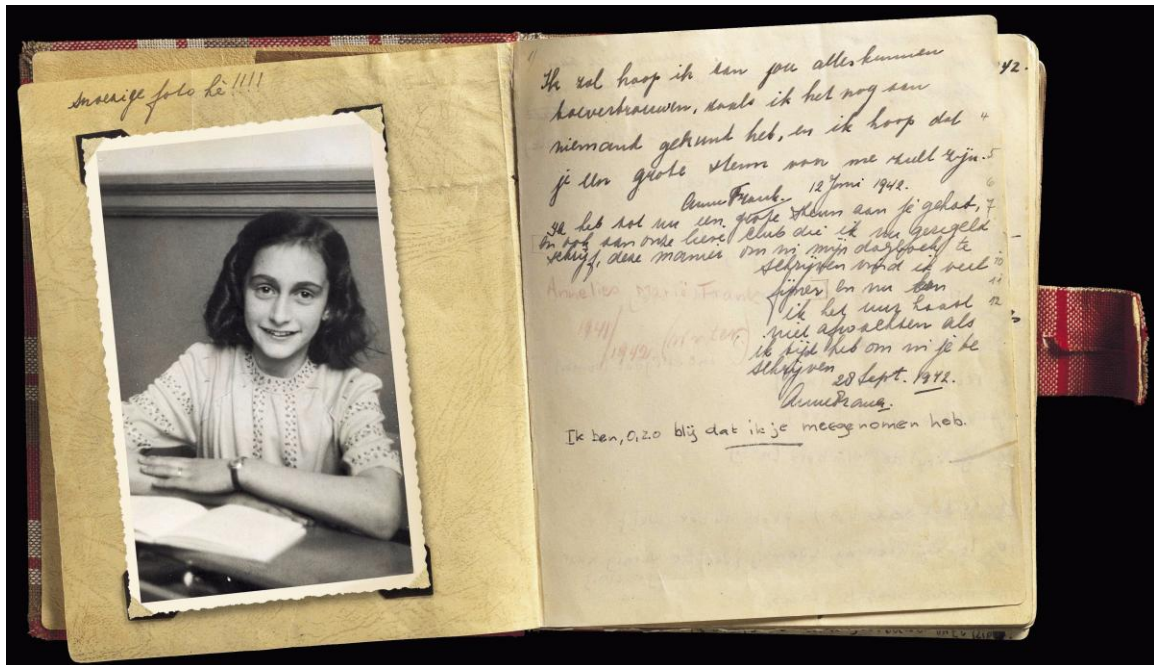 snoezige foto hè!!!!
Ik zal hoop ik aan jou alles kunnen
toevertrouwen, zoals ik het nog aan
niemand gekund heb, en ik hoop dat
je een grote steun van me zult zijn.
Anne Frank. 12 Juni 1942.
Ik heb tot nu een grote steun aan je gehad,
en ook aan onze lieve club die ik nu geregeld
schrijf, deze manier om in mijn dagboek te
schrijven vind ik veel
fijner en nu kan
ik het uur haast
niet afwachten als
ik tijd heb om in je te
schrijven
28 Sept. 1942.
Anne Frank.
Ik ben, o, zo blij dat ik je meegenomen heb.
42.
4
5
6
7
10
11
12
Annelies Marie Frank
1941/
1942. (winter)